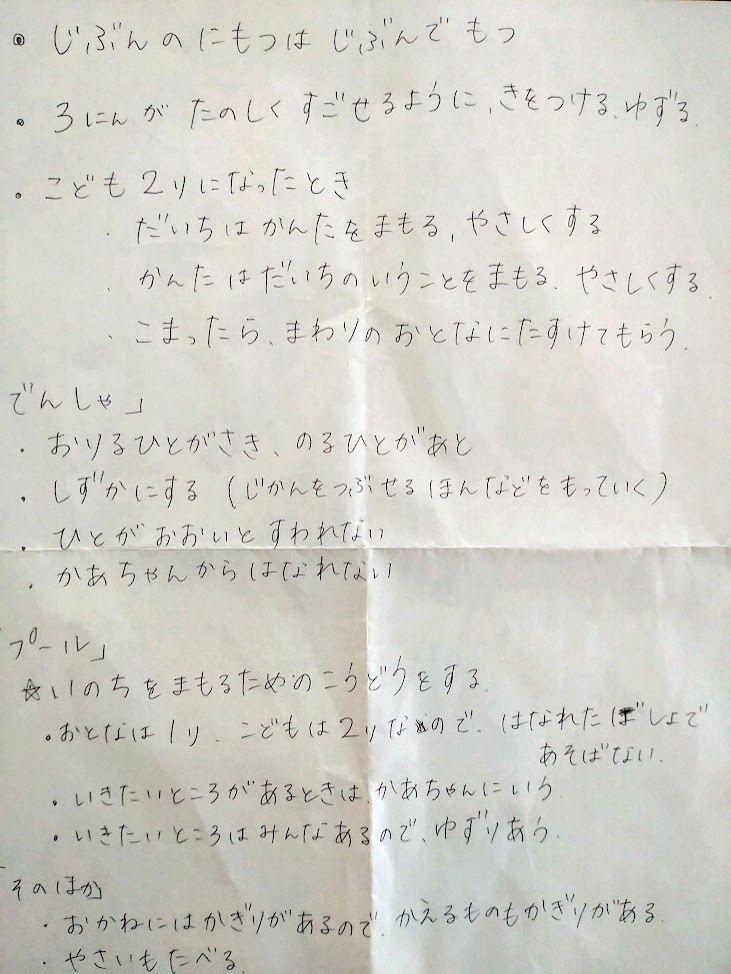 ● じぶんのにもつは じぶんで もつ
・ 3にんが たのしく すごせるように、きをつける、ゆずる.
・ こども 2りになったとき
・ だいちは かんたをまもる, やさしくする
・ かんたはだいちのいうことをまもる. やさしくする.
・ こまったら、まわりのおとなにたすけてもらう.
でんしゃ」
・ おりるひとがさき、のるひとがあと
・ しずかにする (じかんをつぶせるほんなどをもっていく)
・ ひとがおおいと すわれない
・ かあちゃんから はなれない
「プール」
☆いのちをまもるためのこうどうをする.
・おとなは1り. こどもは2りなので. はなれたばしょで
あそばない.
・いきたいところがあるときは、かあちゃんにいう.
・いきたいところはみんなあるので、ゆずりあう.
「そのほか」
・ おかねにはかぎりがあるので、かえるものもかぎりがある.
・ やさいもたべる.